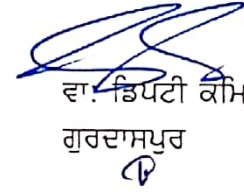 ਵਾ. ਡਿਪਟੀ ਕਮਿ
ਗੁਰਦਾਸਪੁਰ